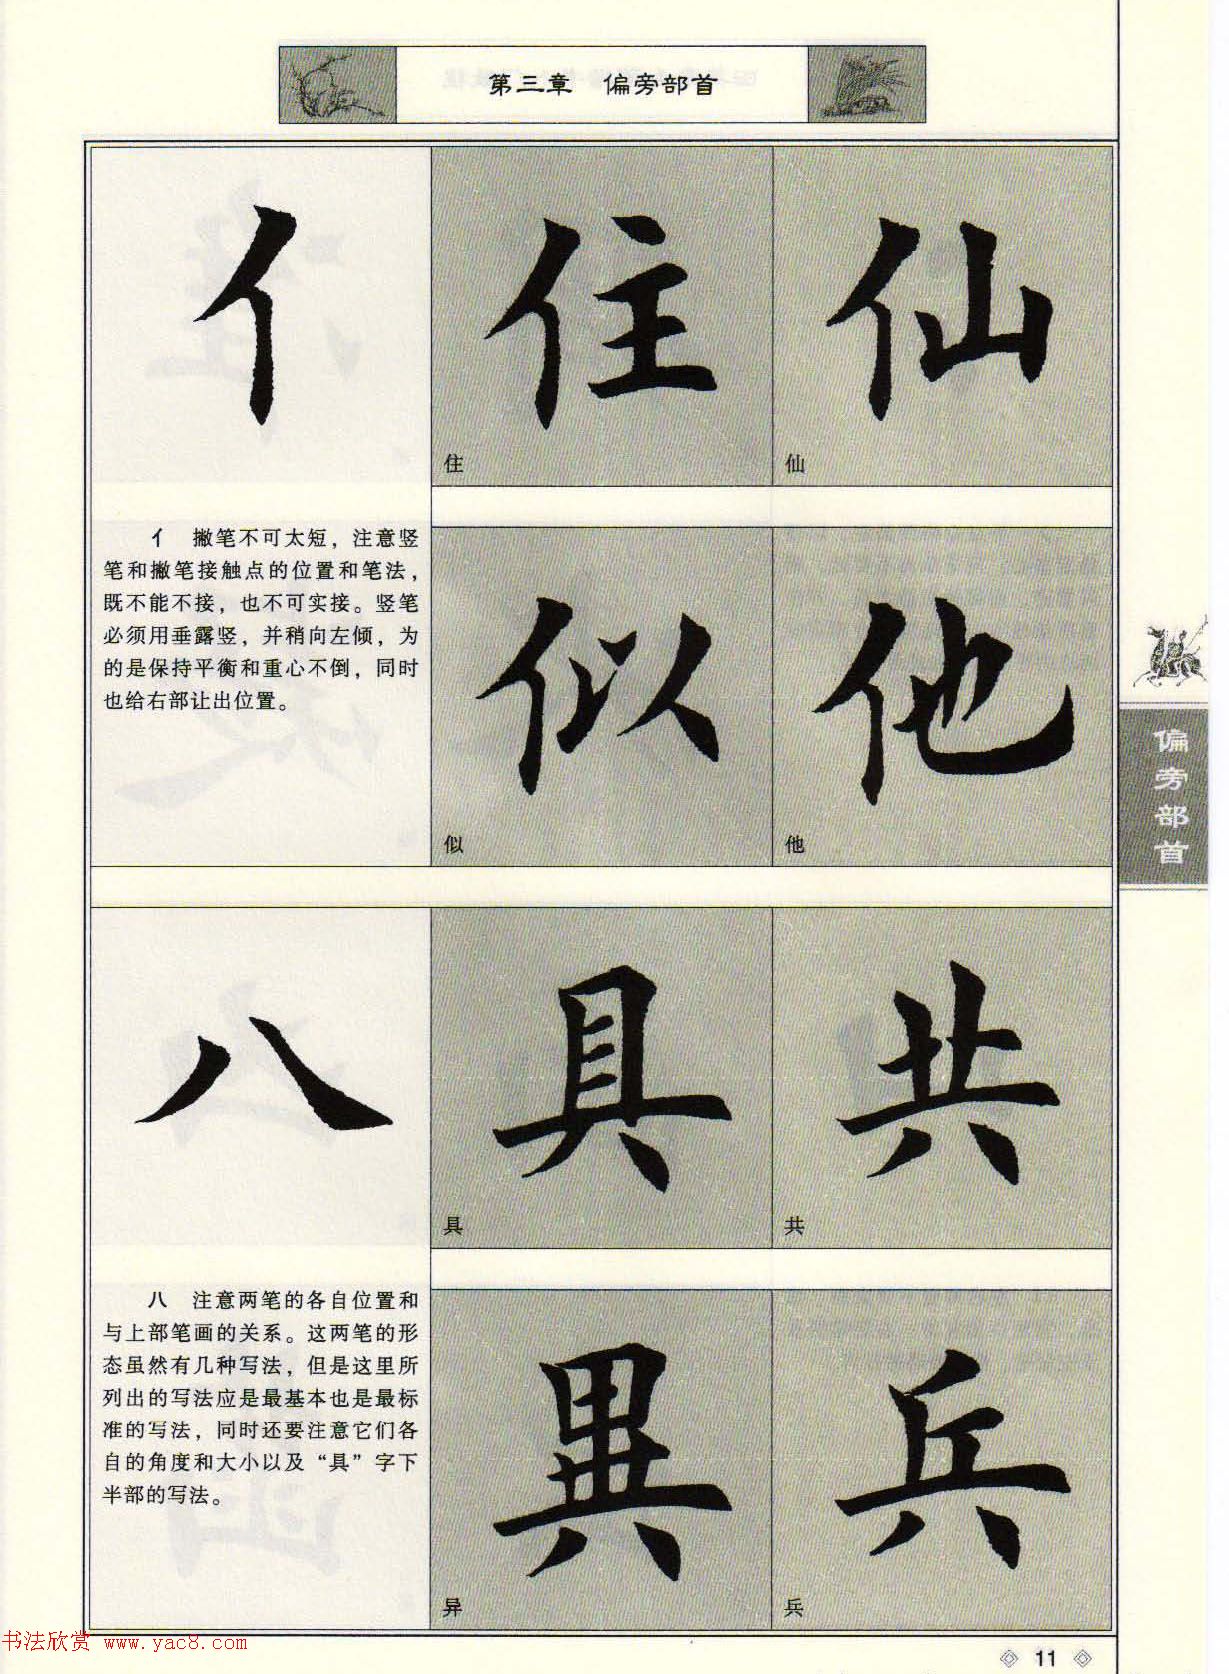 第三章 偏旁部首
亻 住 仙
住 仙
亻 撇笔不可太短，注意竖
笔和撇笔接触点的位置和笔法，
既不能不接，也不可实接。竖笔
必须用垂露竖，并稍向左倾，为
的是保持平衡和重心不倒，同时
也给右部让出位置。
似 他
似 他
偏旁部首
八 具 共
具 共
八 注意两笔的各自位置和
与上部笔画的关系。这两笔的形
态虽然有几种写法，但是这里所
列出的写法应是最基本也是最标
准的写法，同时还要注意它们各
自的角度和大小以及“具”字下
半部的写法。
異 兵
异 兵
书法欣赏 www.yac8.com
11